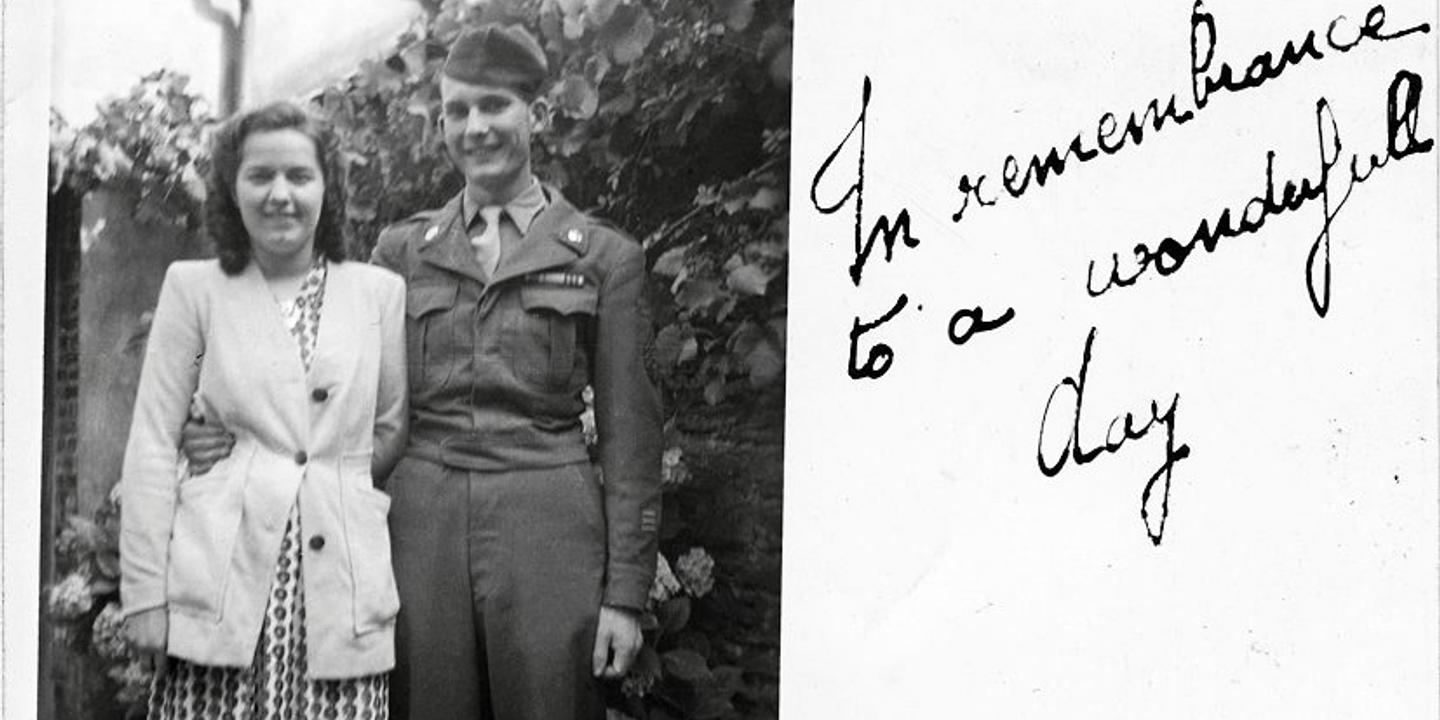 In remembrance
to a wonderfull
day